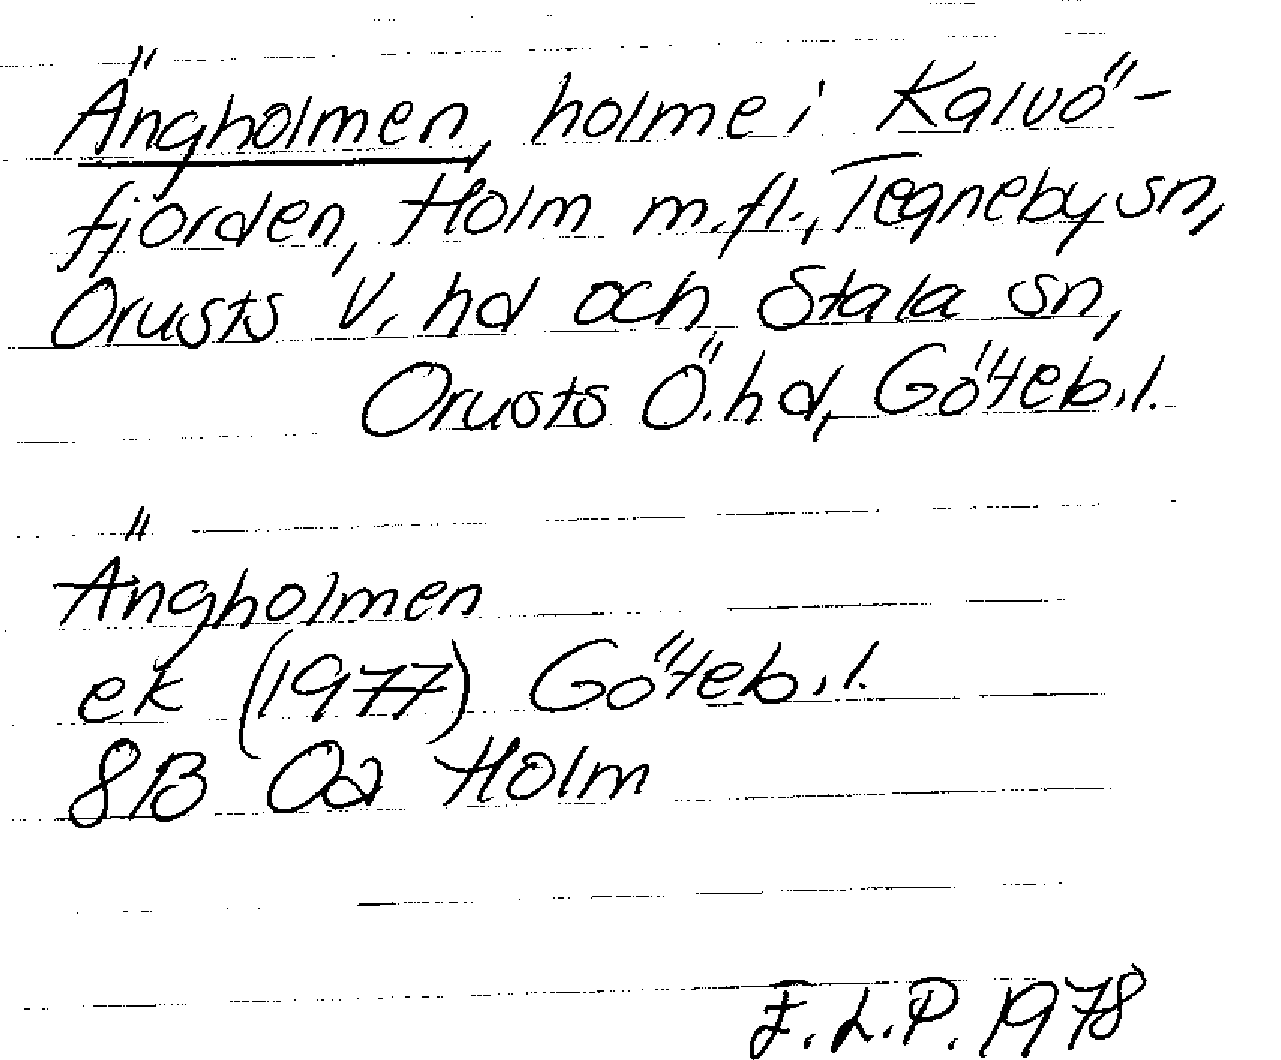 Ängholmen, holme i Kalvö-
fjorden, Holm m.fl., Tegneby sn,
Orusts V. hd och Stala sn,
Orusts Ö. hd, Göteb. l.
Ängholmen
ek (1977) Göteb. l.
8B 0a Holm
F. L. P. 1978